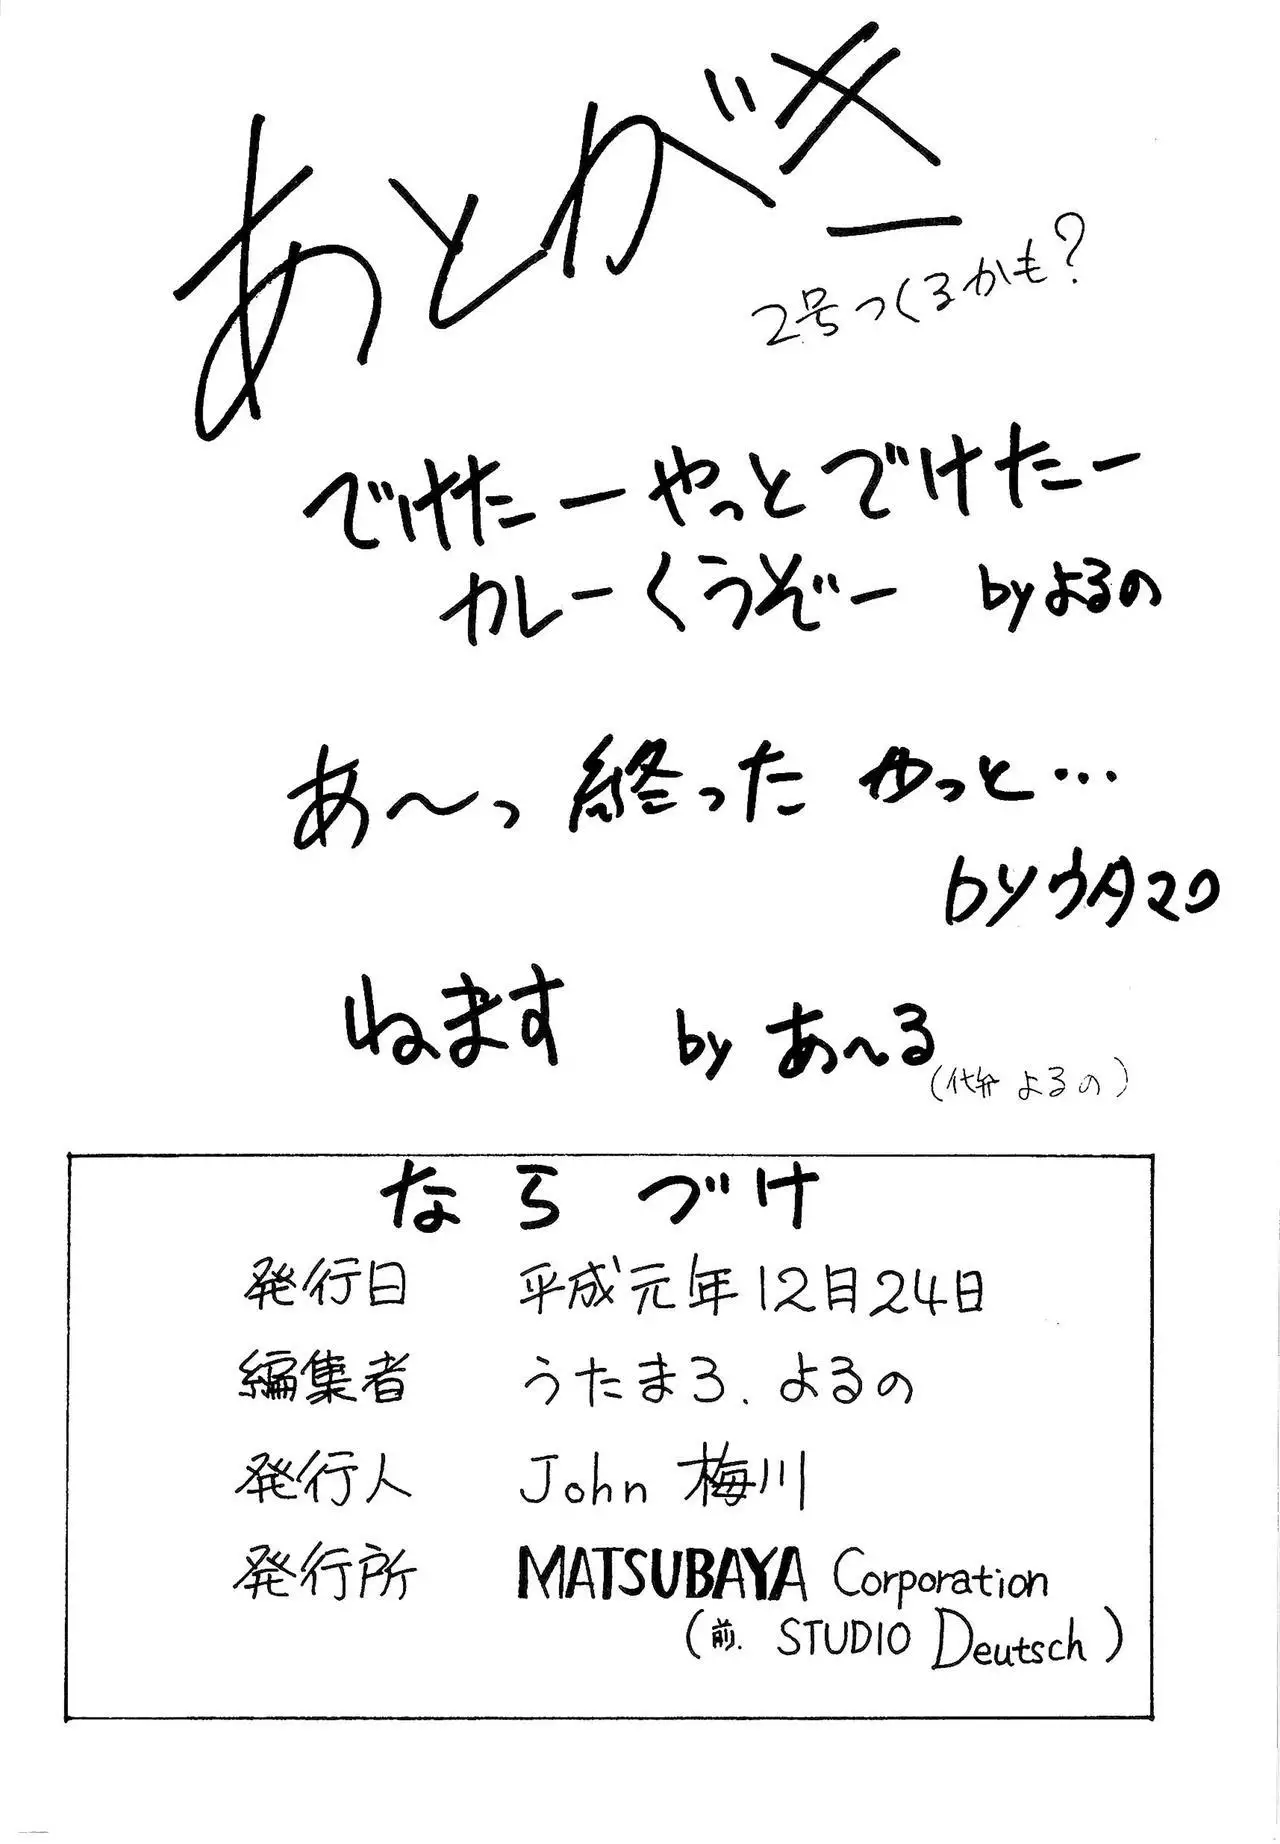 あとがき
2号つくるかも?
でけたーやっとでけたー
カレーくうぞー byよるの
あ〜っ 終った やっと…
byウタマロ
ねます by あ〜る
(代弁 よるの)
ならづけ
発行日 平成元年12月24日
編集者 うたまろ.よるの
発行人 John 梅川
発行所 MATSUBAYA Corporation
(前. STUDIO Deutsch)